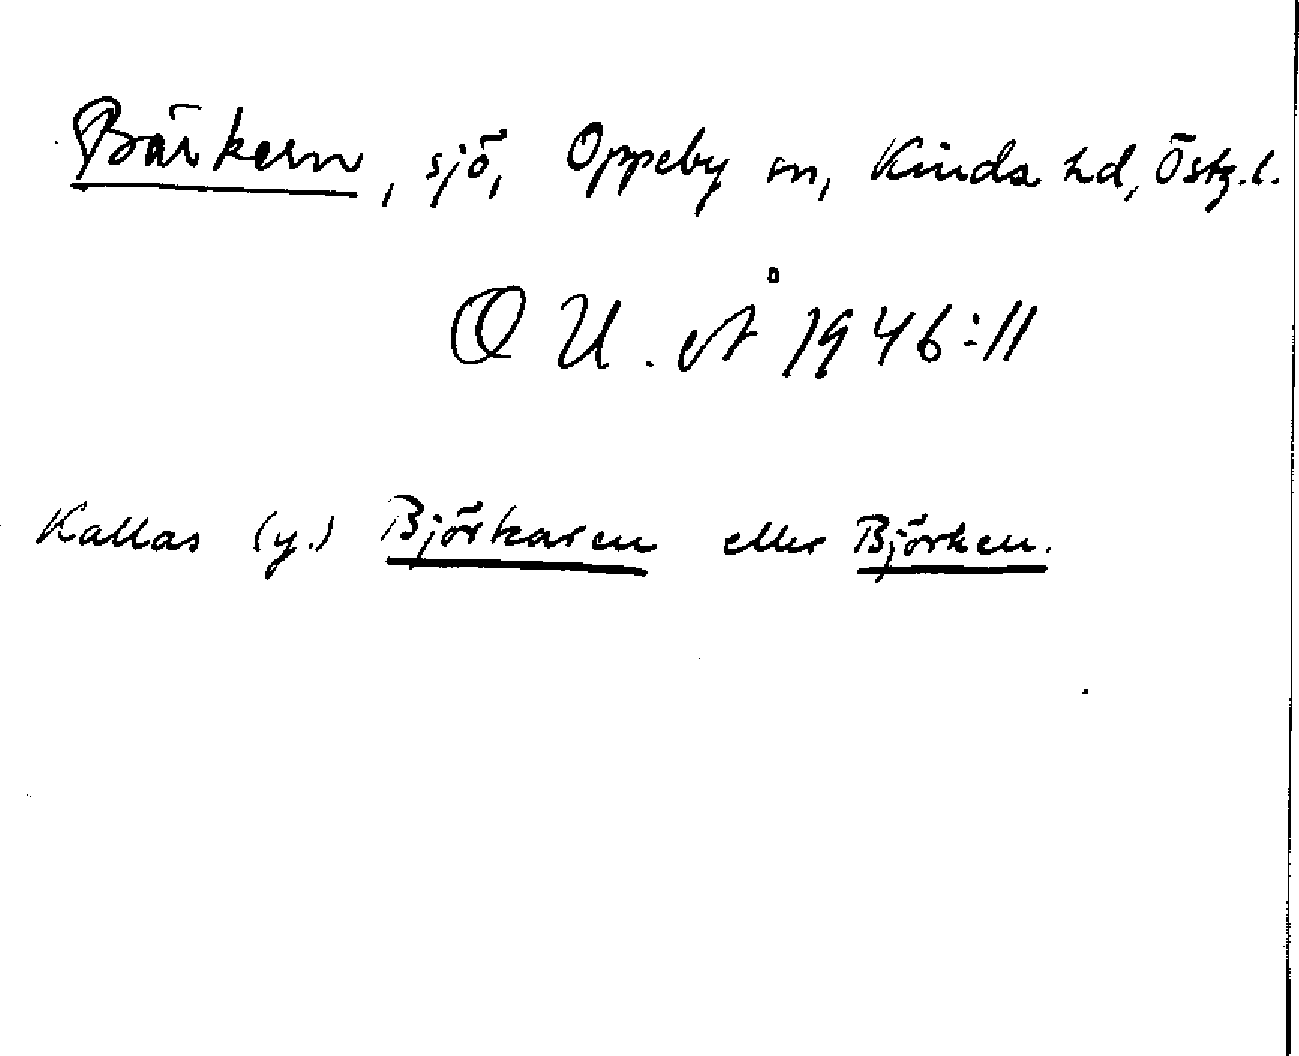 Bärkern, sjö, Oppeby sn, Kinds hd, Östg.l.
OU. Å 1946:11
Kallas (y.) Björkaren eller Björken.